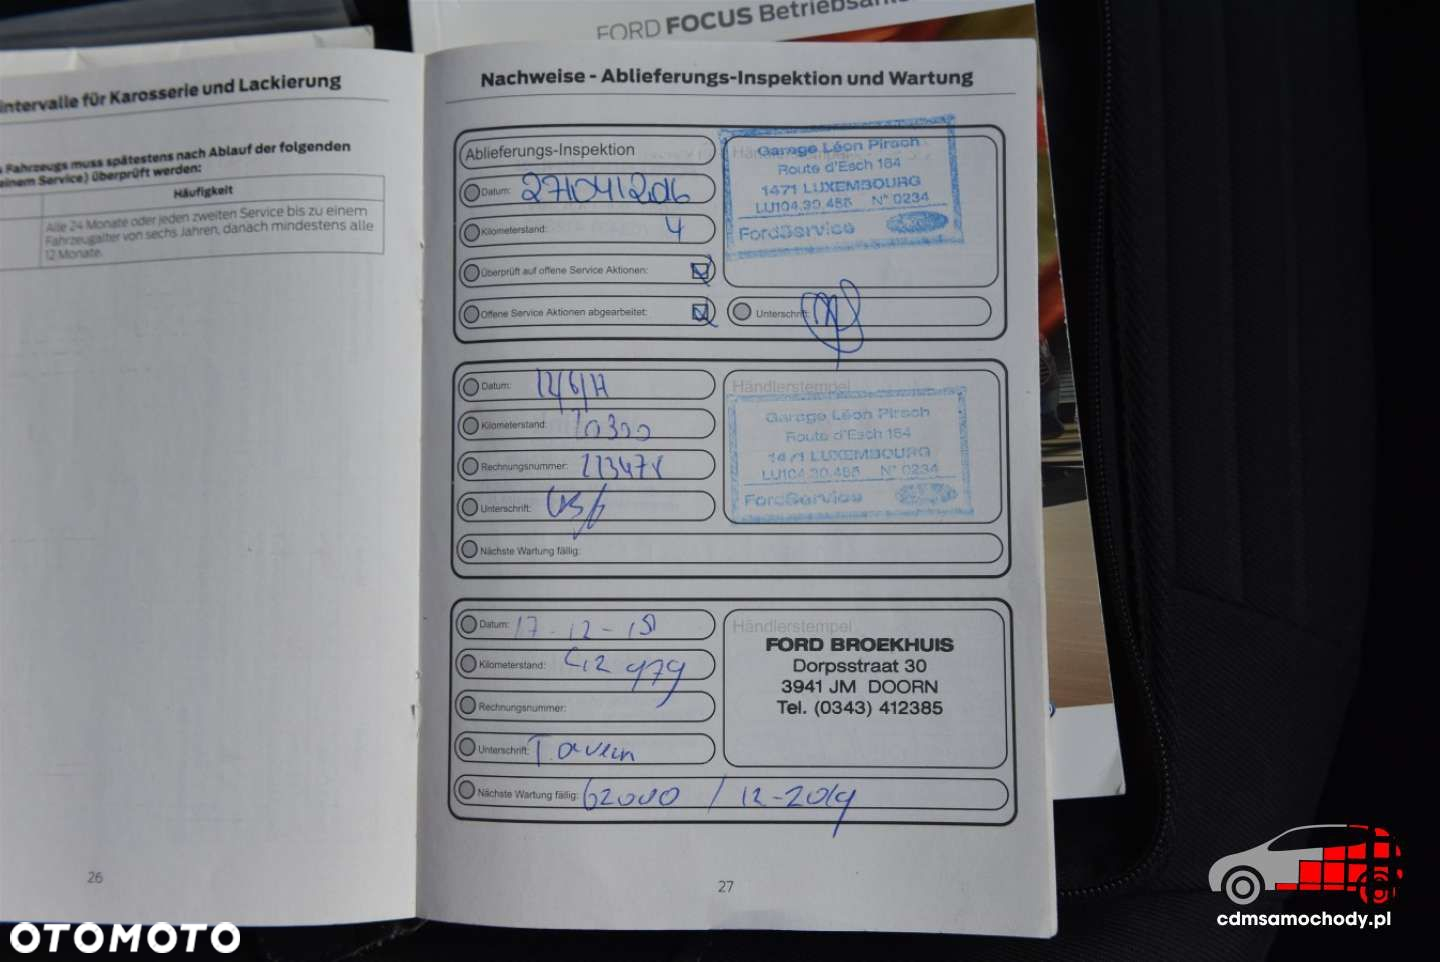 FORD FOCUS
intervalle für Karosserie und Lackierung
Fahrzeugs muss spätestens nach Ablauf der folgenden
einem Service) überprüft werden:
Häufigkeit
Alle 24 Monate oder jeden zweiten Service bis zu einem
Fahrzeugalter von sechs Jahren, danach mindestens alle
12 Monate.
26
Nachweise - Ablieferungs-Inspektion und Wartung
Ablieferungs-Inspektion
Datum: 27/04/2016
Kilometerstand: 4
Überprüft auf offene Service Aktionen:
Offene Service Aktionen abgearbeitet:
Garage Léon Pirsch
Route d'Esch 164
1471 LUXEMBOURG
LU104.30.485 N° 0234
FordService
Unterschrift:
Datum: 12/6/17
Kilometerstand:
Rechnungsnummer:
Unterschrift:
Nächste Wartung fällig:
Händlerstempel
Garage Léon Pirsch
Route d'Esch 164
1471 LUXEMBOURG
LU104.30.485 N° 0234
FordService
Datum: 17-12-18
Kilometerstand: 42979
Rechnungsnummer:
Unterschrift:
Nächste Wartung fällig: 62000 / 12-2019
Händlerstempel
FORD BROEKHUIS
Dorpsstraat 30
3941 JM DOORN
Tel. (0343) 412385
27
OTOMOTO
cdmsamochody.pl